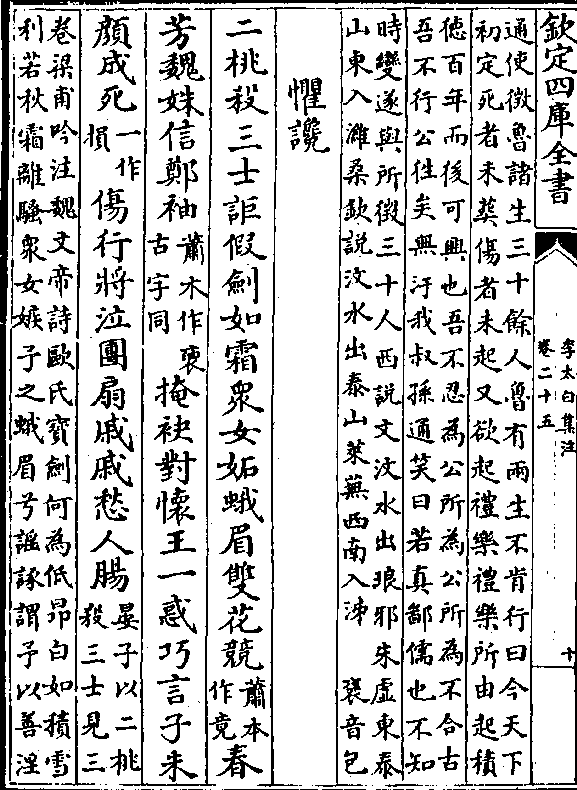 欽定四庫全書
李太白集注
卷二十五
十
通使徵魯諸生三十餘人魯有兩生不肯行曰今天下
初定死者未葬傷者未起又欲起禮樂禮樂所由起積
徳百年而後可興也吾不忍為公所為公所為不合古
吾不行公徃矣無汙我叔孫通笑曰若真鄙儒也不知
時變遂與所徵三十人西說文汶水出琅邪朱虛東泰
山東入濰桑欽說汶水出泰山萊蕪西南入泲 襃音包
懼讒
二桃殺三士詎假劍如霜衆女妬蛾眉雙花競蕭本作竞春
芳魏姝信鄭袖蕭木作褎古字同掩袂對懷王一惑巧言子朱
顔成死一作損傷行將泣團扇戚戚愁人腸晏子以二桃殺三士見三
卷梁甫吟注魏文帝詩歐氏寳劍何為低昂白如積雪
利若秋霜離騷衆女嫉予之蛾眉兮謡諑謂予以善淫